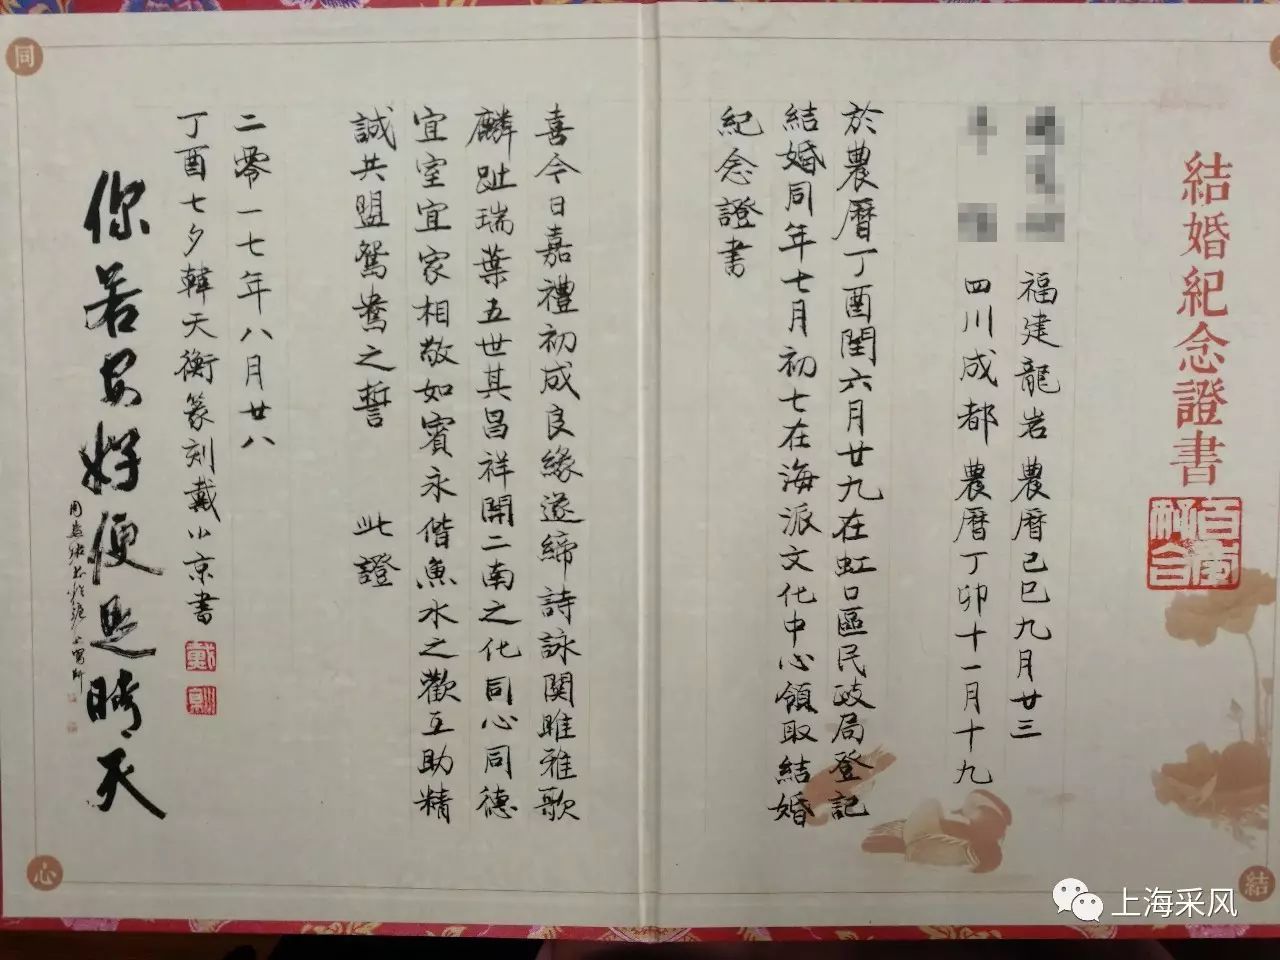 結婚紀念證書
百年和合
福建龍岩 農曆己巳九月廿三
四川成都 農曆丁卯十一月十九
於農曆丁酉閏六月廿九在虹口區民政局登記
結婚同年七月初七在海派文化中心領取結婚
紀念證書
喜今日嘉禮初成良緣遂締詩詠關雎雅歌
麟趾瑞葉五世其昌祥開二南之化同心同德
宜室宜家相敬如賓永偕魚水之歡互助精
誠共盟鴛鴦之誓 此證
二零一七年八月廿八
丁酉七夕韓天衡篆刻戴小京書
你若安好便是晴天
同
心
結
上海采风